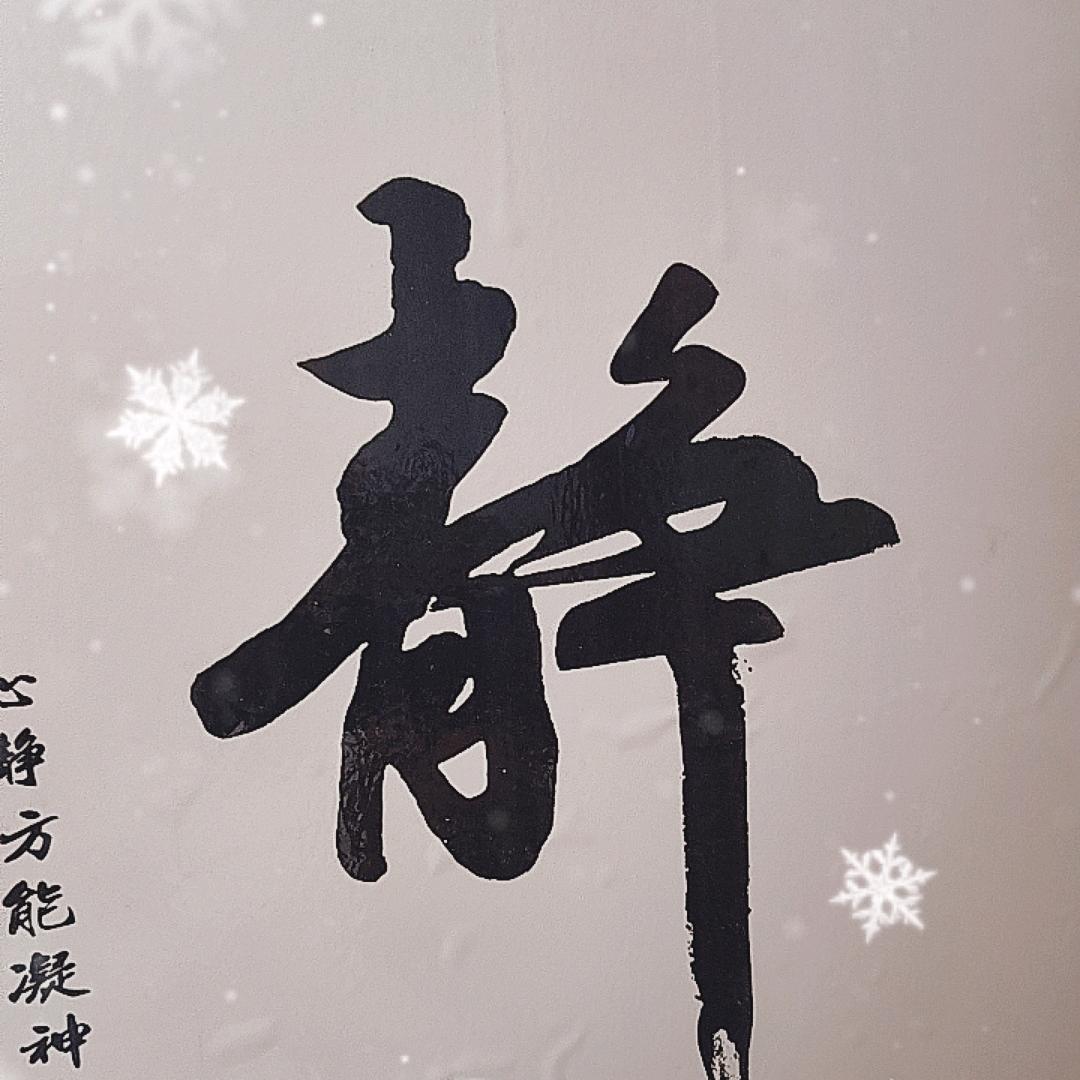 静
心静方能凝神